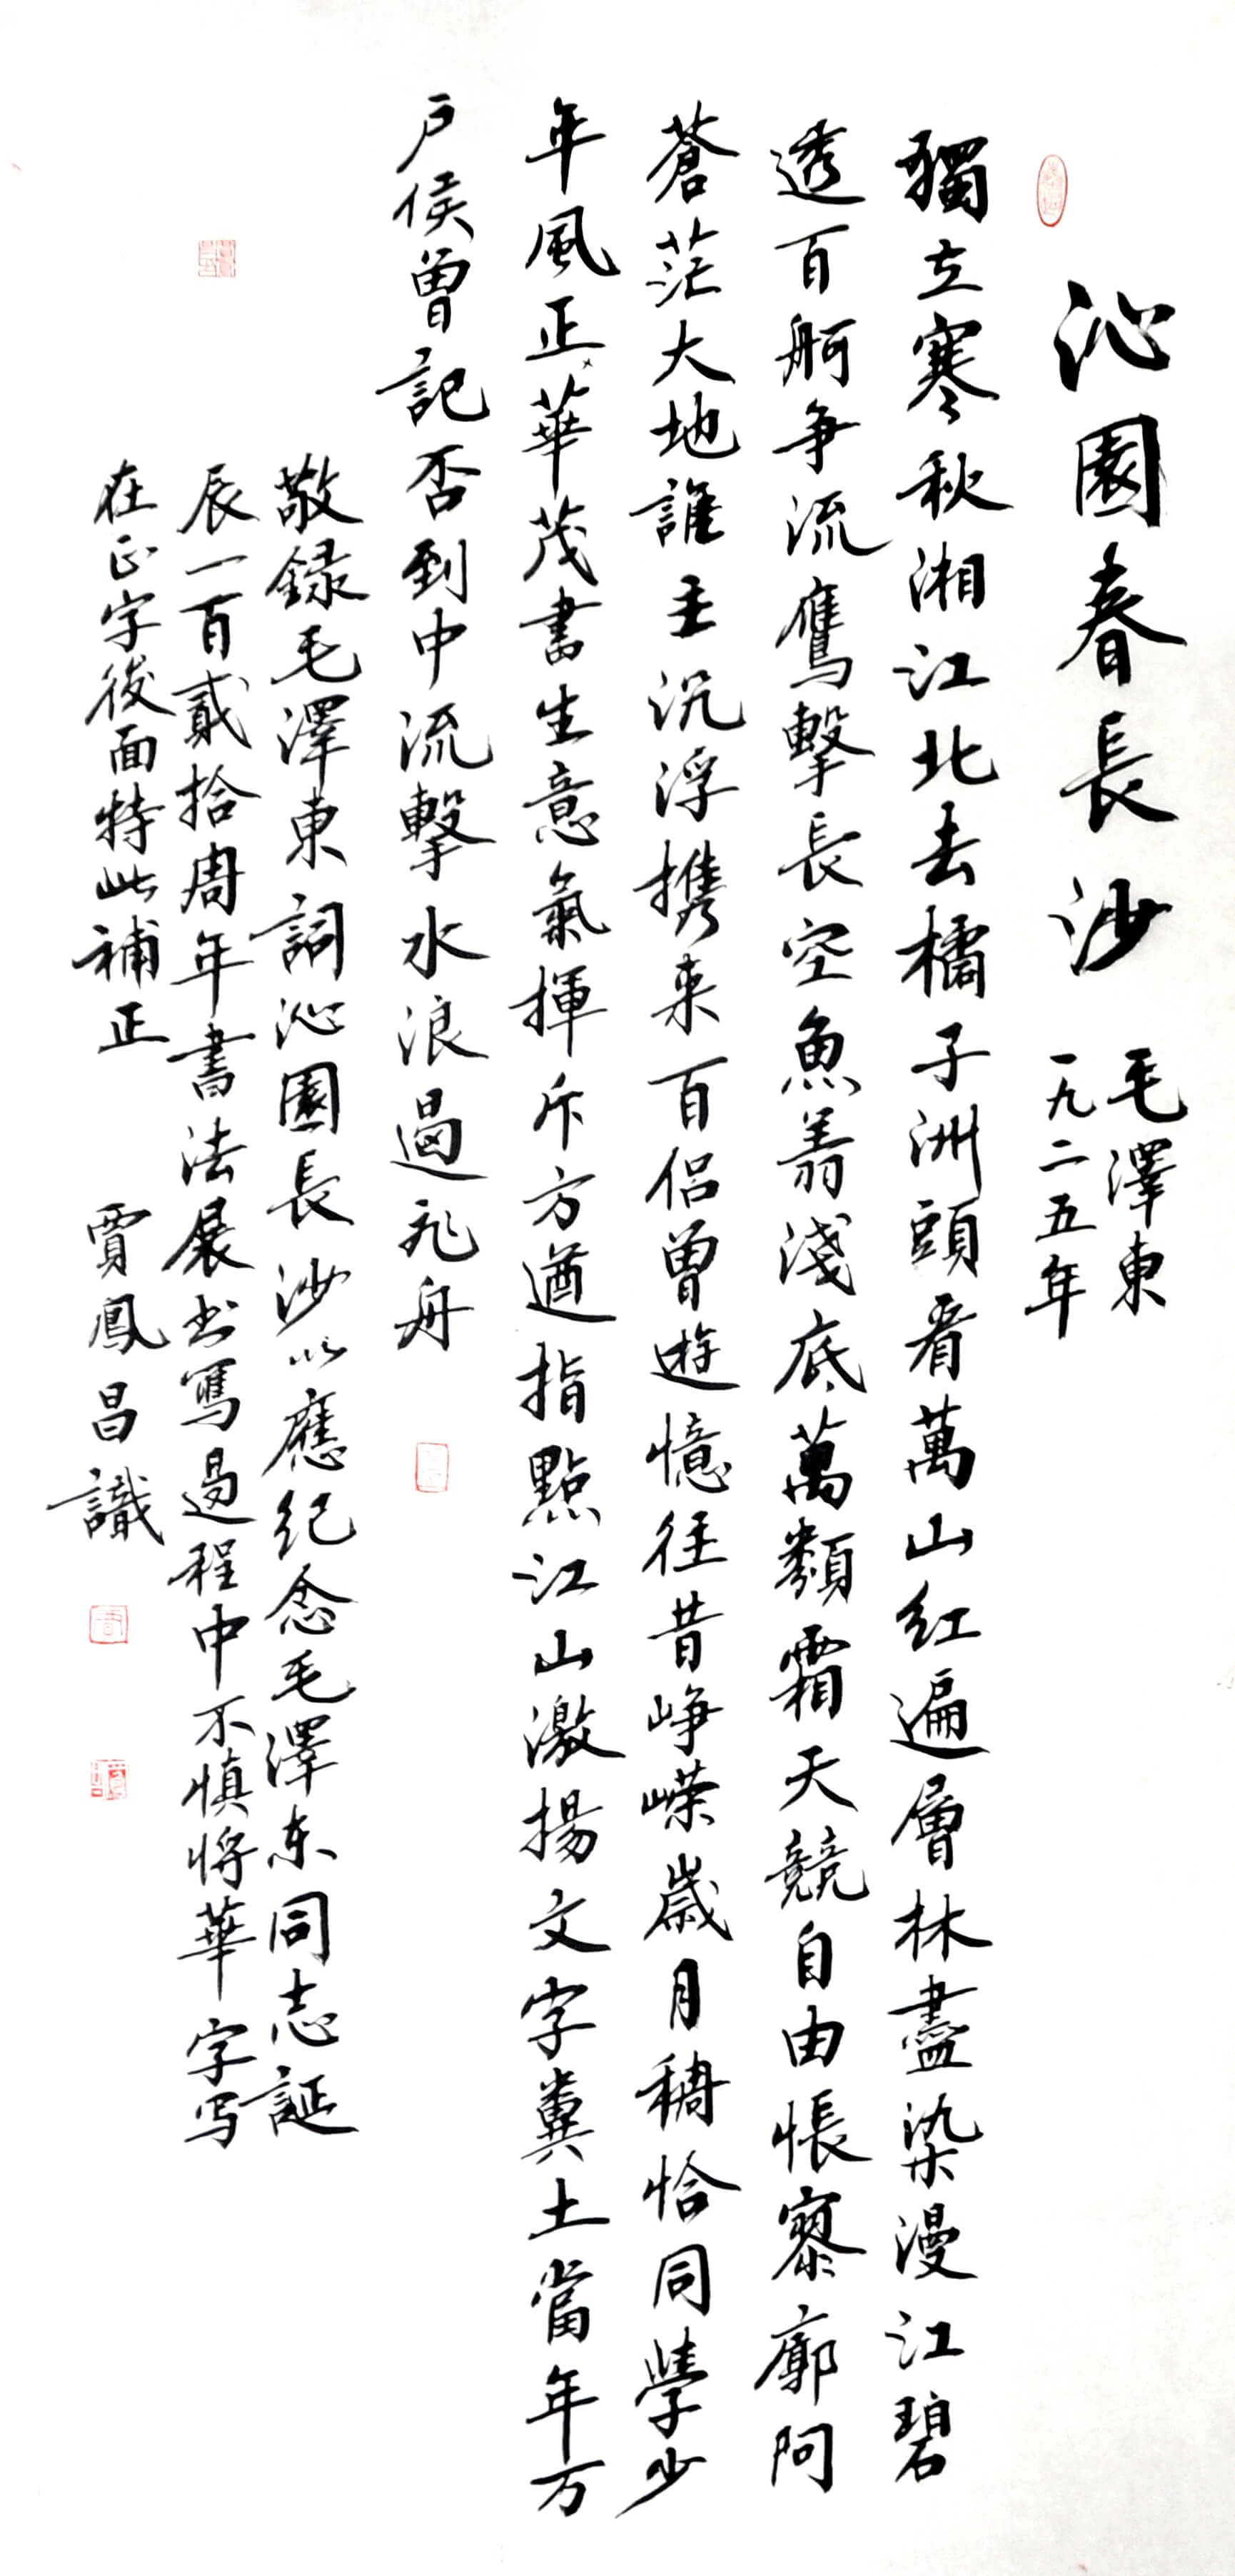 沁園春長沙
毛澤東
一九二五年
獨立寒秋湘江北去橘子洲頭看萬山红遍層林盡染漫江碧
透百舸争流鷹擊長空魚翥淺底萬類霜天競自由悵寥廓问
蒼茫大地誰主沉浮携来百侣曾遊憶往昔峥嵘歲月稠恰同學少
年風正華茂書生意氣揮斥方遒指點江山激揚文字糞土當年万
户侯曾記否到中流擊水浪遏飛舟
敬録毛澤東詞沁園長沙以應纪念毛澤东同志誕
辰一百貳拾周年書法展书寫過程中不慎将華字写
在正字後面特此補正
賈鳳昌識